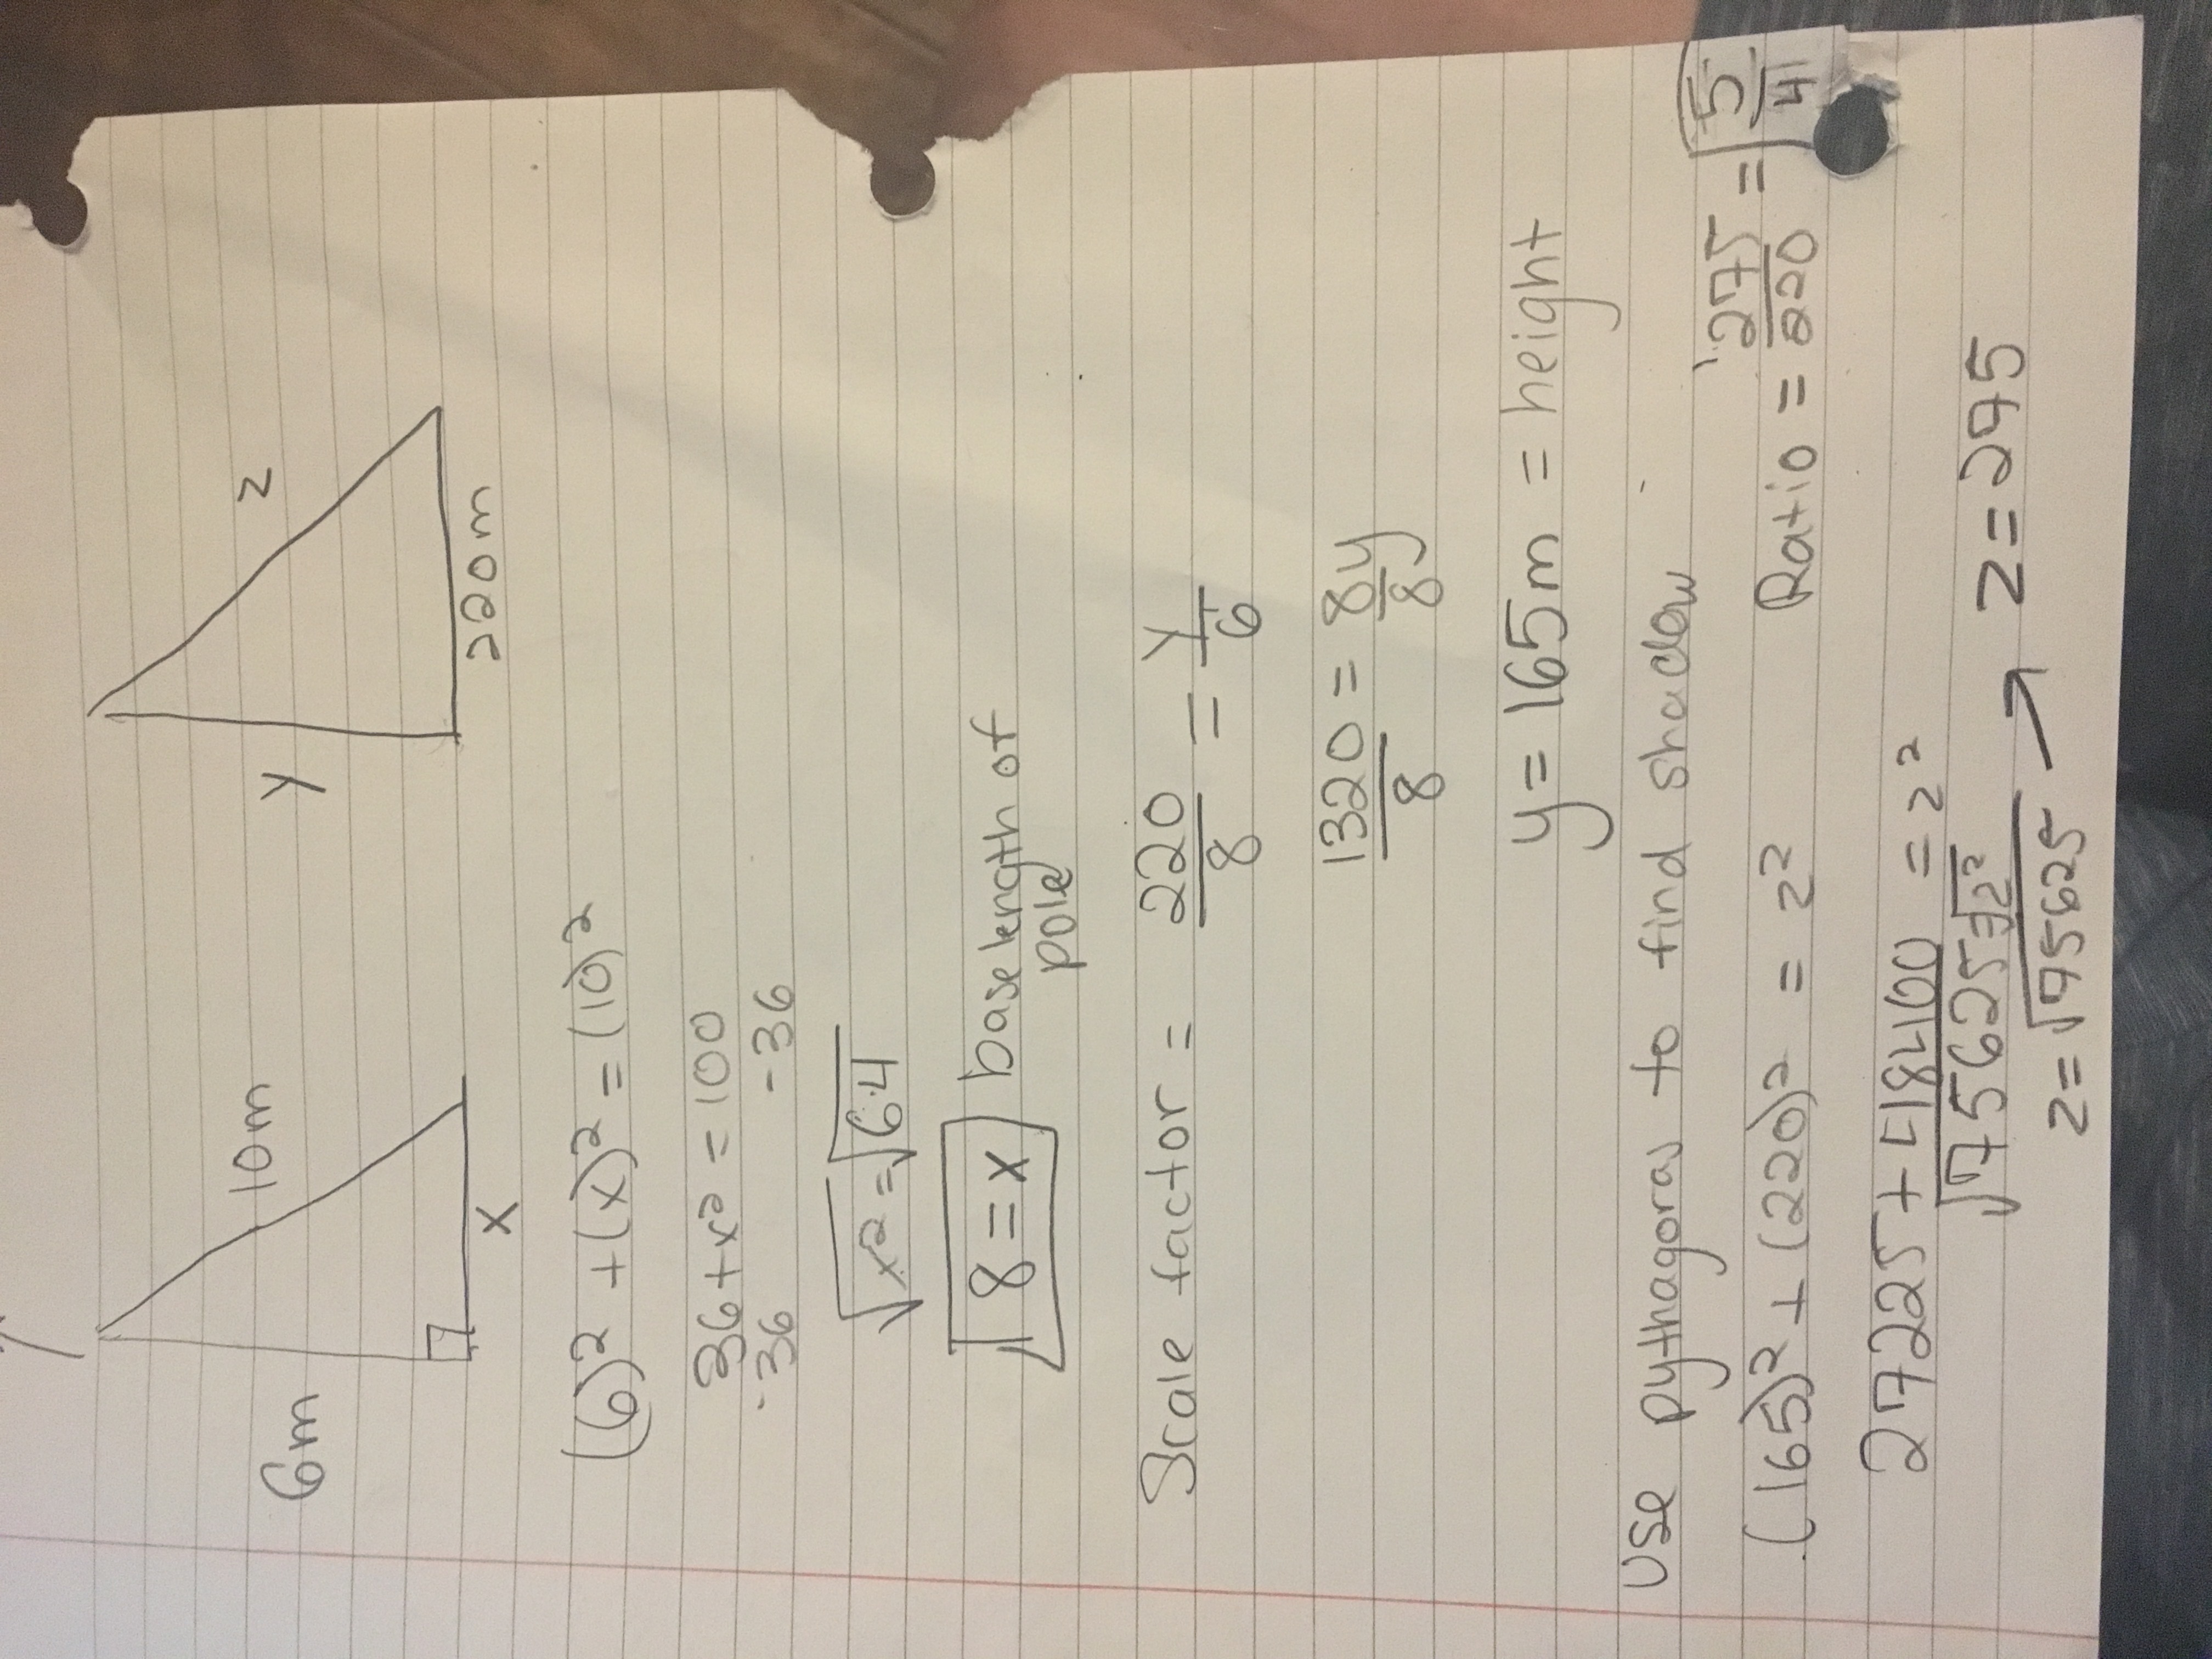 10m
6m
x
z
y
220m
(6)² + (x)² = (10)²
36 + x² = 100
-36 -36
√x² = √64
8 = x base length of
pole
Scale factor = 220/8 = y/6
1320/8 = 8y/8
y = 165m = height
Use pythagoras to find shadow
(165)² + (220)² = z²
Ratio = 275/220 = 5/4
27225 + 48400 = z²
√75625 = √z²
z = √75625 → z = 275